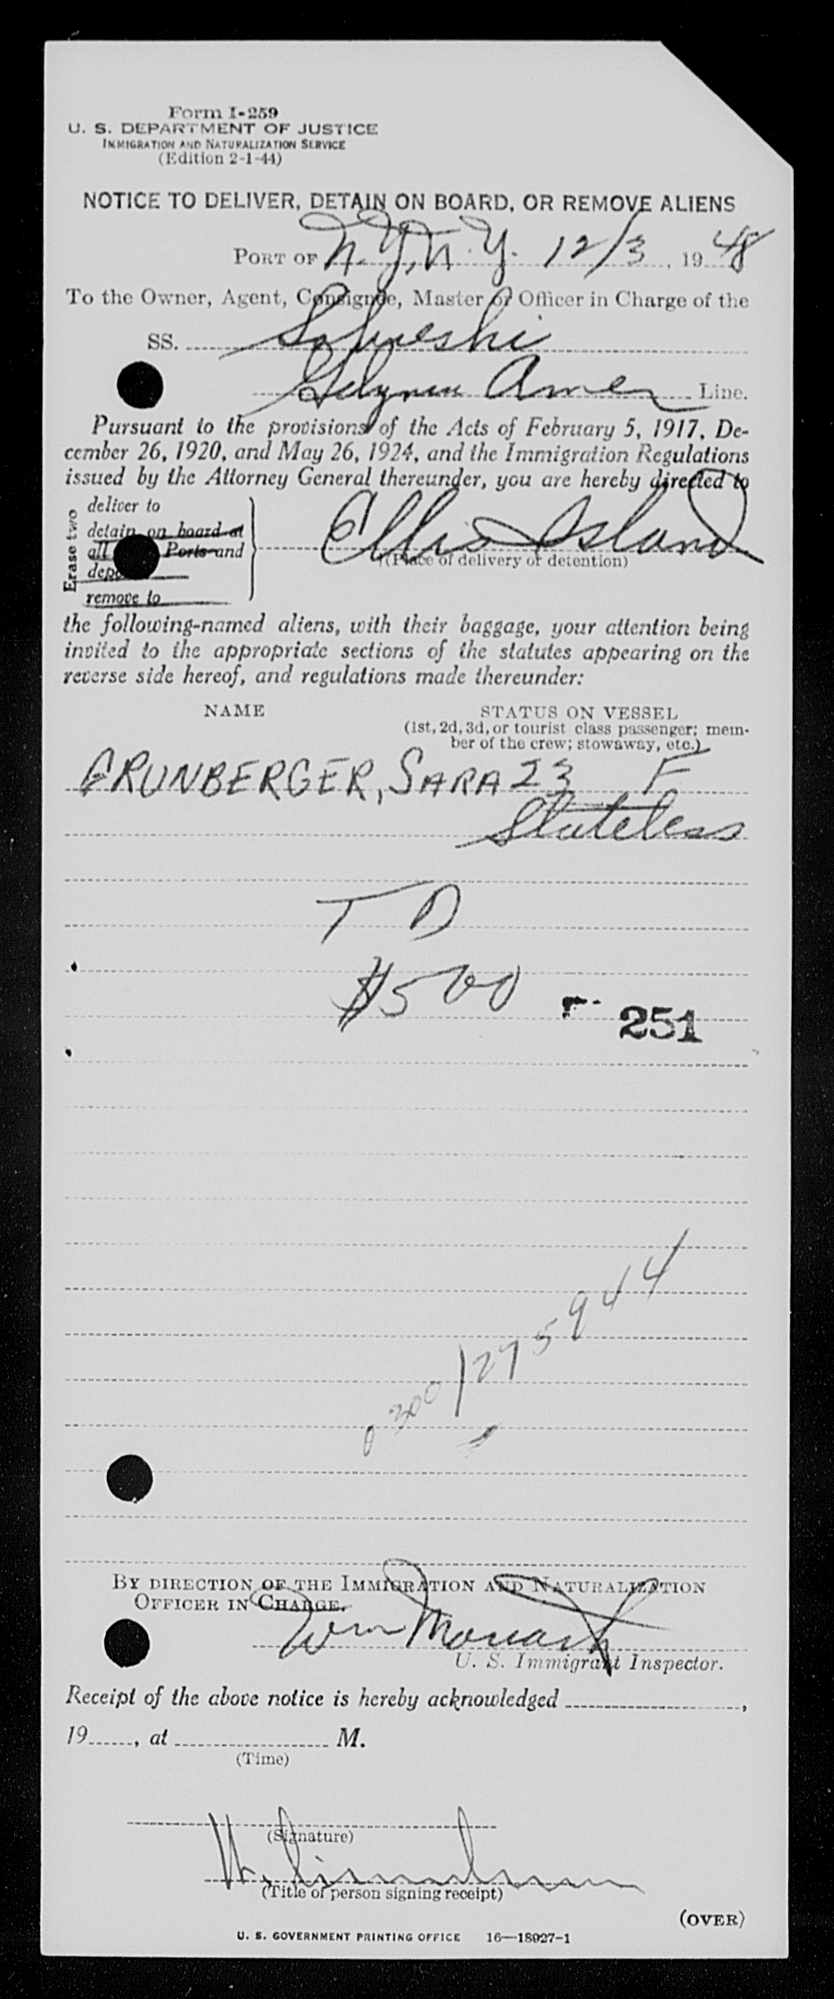 Form I-259
U. S. DEPARTMENT OF JUSTICE
IMMIGRATION AND NATURALIZATION SERVICE
(Edition 2-1-44)
NOTICE TO DELIVER, DETAIN ON BOARD, OR REMOVE ALIENS
PORT OF N.Y., N.Y. 12/3, 1948
To the Owner, Agent, Consignee, Master or Officer in Charge of the
SS. Sobieski
Gdynia Amer Line.
Pursuant to the provisions of the Acts of February 5, 1917, De-
cember 26, 1920, and May 26, 1924, and the Immigration Regulations
issued by the Attorney General thereunder, you are hereby directed to
Erase two
deliver to
detain on board at
all Ports and
remove to
Ellis Island
(Place of delivery or detention)
the following-named aliens, with their baggage, your attention being
invited to the appropriate sections of the statutes appearing on the
reverse side hereof, and regulations made thereunder:
NAME STATUS ON VESSEL
(1st, 2d, 3d, or tourist class passenger; mem-
ber of the crew; stowaway, etc.)
GRUNBERGER, SARA 23 F
Stateless
T D
$500
251
0300/275944
BY DIRECTION OF THE IMMIGRATION AND NATURALIZATION
OFFICER IN CHARGE.
Wm
U. S. Immigrant Inspector.
Receipt of the above notice is hereby acknowledged ,
19 , at M.
(Time)
(Signature)
(Title of person signing receipt)
(OVER)
U. S. GOVERNMENT PRINTING OFFICE 16—18927-1